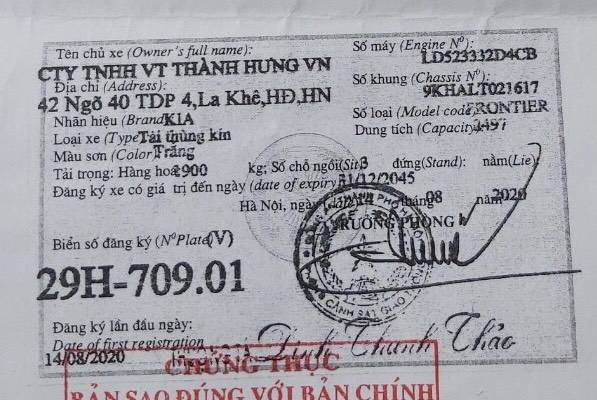 Tên chủ xe (Owner's full name):
CTY TNHH VT THÀNH HƯNG VN
Địa chỉ (Address):
42 Ngõ 40 TDP 4,La Khê,HĐ,HN
Nhãn hiệu (Brand KIA
Loại xe (Type Tải thùng kín
Màu sơn (Color Trắng
Tải trọng: Hàng hoá 2900 kg; Số chỗ ngồi(Sit) 3 đứng(Stand): nằm(Lie)
Đăng ký xe có giá trị đến ngày (date of expiry 31/12/2045
Số máy (Engine Nº):
LD523332D4CB
Số khung (Chassis Nº):
9KHALT021617
Số loại (Model code FRONTIER
Dung tích (Capacity 2497
Hà Nội, ngày 14 tháng 08 năm 2020
TRƯỞNG PHÒNG
Biển số đăng ký (NºPlate (V)
29H-709.01
CẢNH SÁT GIAO
Đăng ký lần đầu ngày:
Date of first registration
14/08/2020
Đinh Thanh Thảo
CHỨNG THỰC
BẢN SAO ĐÚNG VỚI BẢN CHÍNH